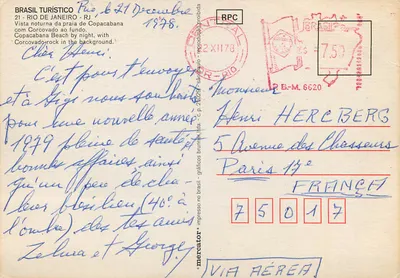 BRASIL TURÍSTICO
21 - RIO DE JANEIRO - RJ
Vista noturna da praia de Copacabana
com Corcovado ao fundo.
Copacabana Beach by night, with
Corcovadorock in the background.
Rio le 21 Decembre
1978.
Cher Henri.
C'est pour t'envoyer
et à Gigi nous souhaits
pour une nouvelle année
1979 pleine de santé, et
bonnes affaires, ainsi
qu'un peu de cha-
leur brésilien (40° à
l'ombre) des tes amis
Zelma et George
mercator
RPC
CENTRAL
22 XII 78
BRASIL
7,50
P.B.-M. 6620
Monsieur
Henri HERCBERG
5 Avenue des Chasseurs
Paris 17e
FRANÇA
75017
VIA AÉREA